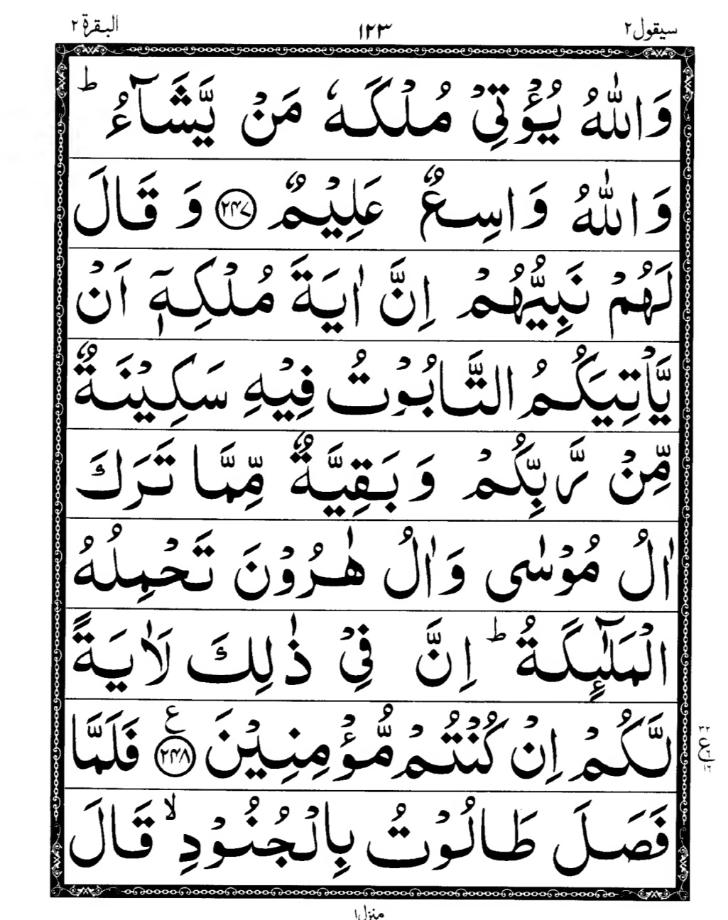 سيقول ٢ ١٢٣ البقرة ٢
وَاللّٰهُ يُؤْتِيْ مُلْكَهٗ مَنْ يَّشَآءُ ؕ
وَاللّٰهُ وَاسِعٌ عَلِيْمٌ ﴿۲۴۷﴾ وَ قَالَ
لَهُمْ نَبِيُّهُمْ اِنَّ اٰيَةَ مُلْكِهٖۤ اَنْ
يَّاْتِيَكُمُ التَّابُوْتُ فِيْهِ سَكِيْنَةٌ
مِّنْ رَّبِّكُمْ وَ بَقِيَّةٌ مِّمَّا تَرَكَ
اٰلُ مُوْسٰى وَ اٰلُ هٰرُوْنَ تَحْمِلُهُ
الْمَلٰٓئِكَةُ ؕ اِنَّ فِيْ ذٰلِكَ لَاٰيَةً
لَّكُمْ اِنْ كُنْتُمْ مُّؤْمِنِيْنَ ﴿۲۴۸﴾ ع فَلَمَّا
فَصَلَ طَالُوْتُ بِالْجُنُوْدِ ۙ قَالَ
منزل ١